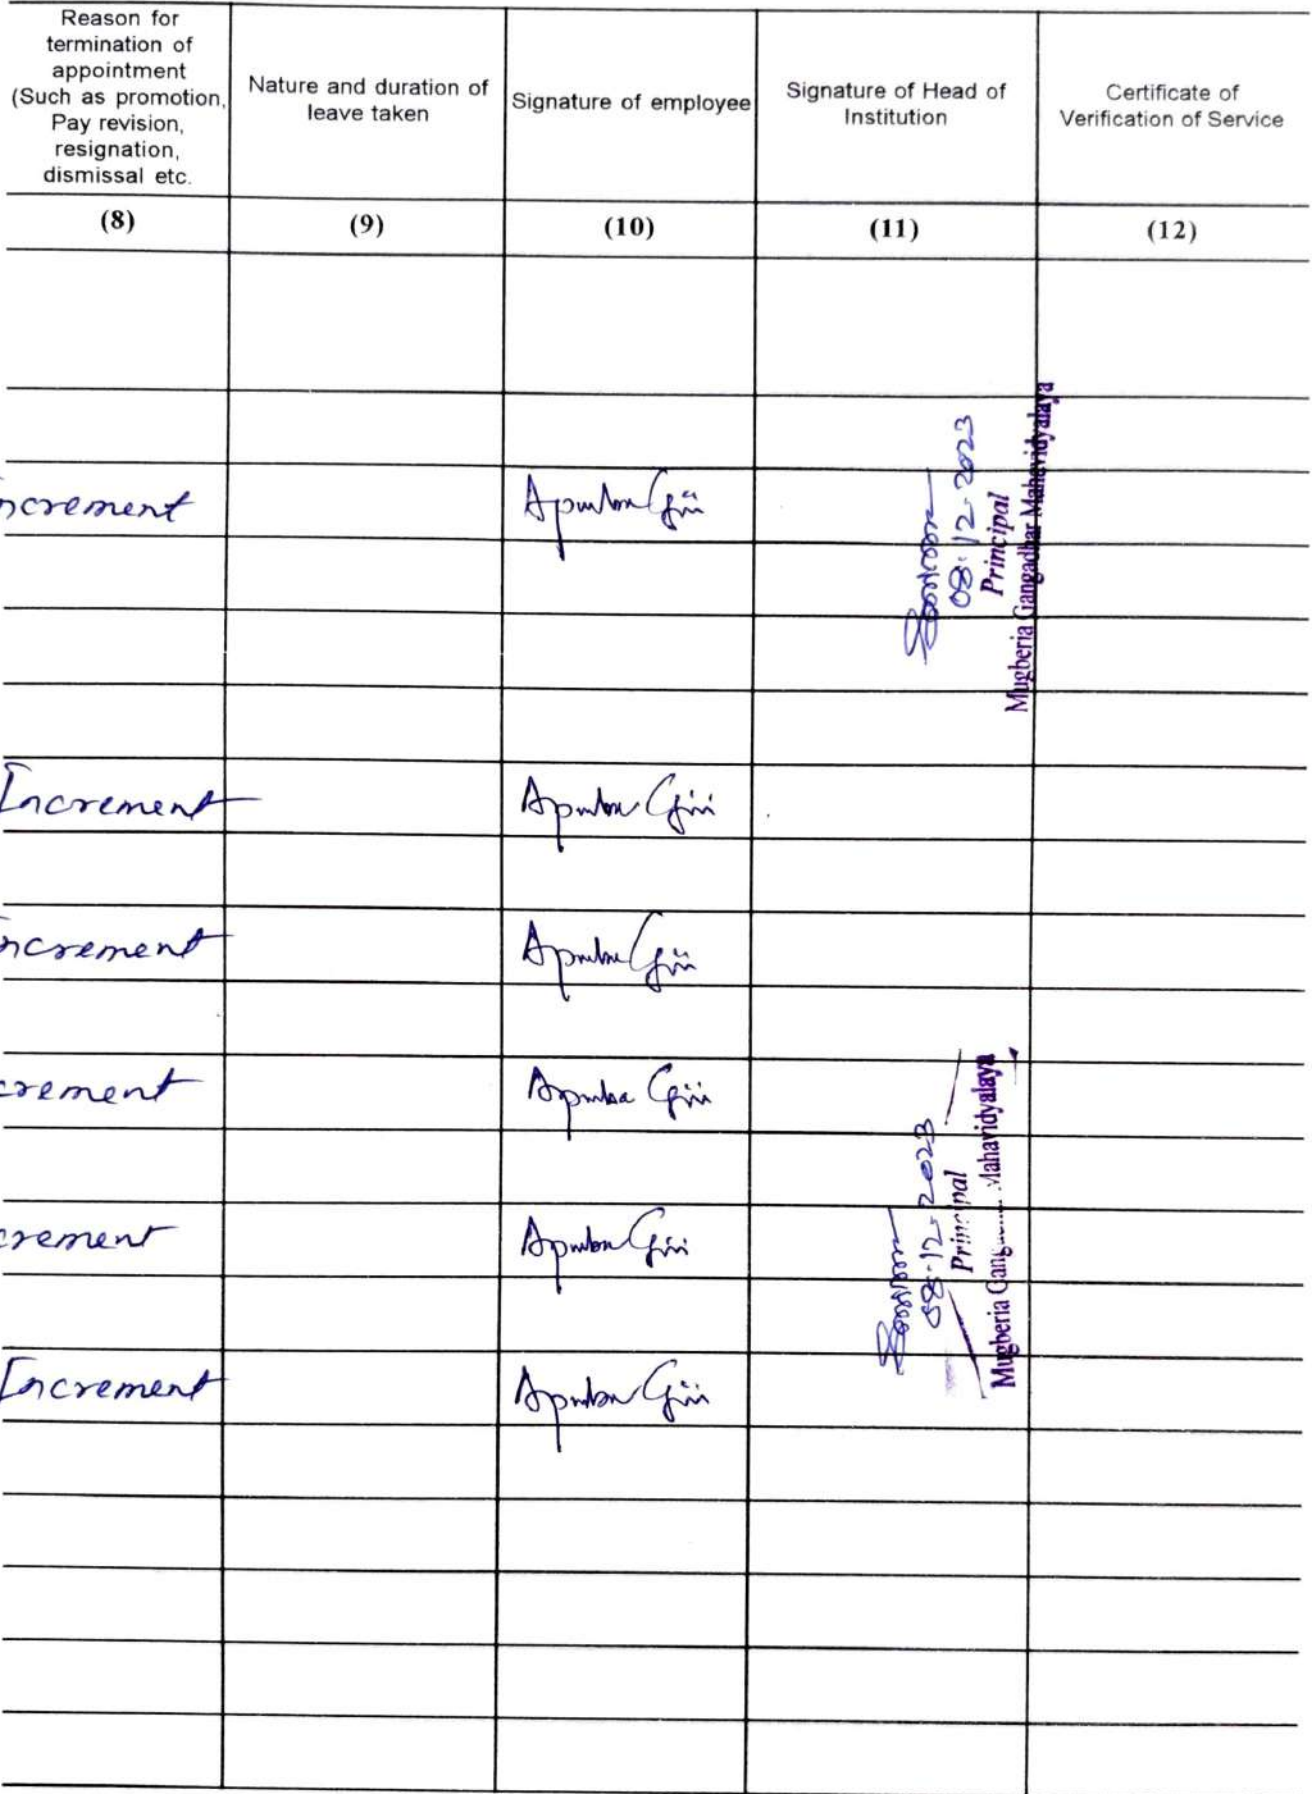 Reason for
termination of
appointment
(Such as promotion,
Pay revision,
resignation,
dismissal etc.
Nature and duration of
leave taken
Signature of employee
Signature of Head of
Institution
Certificate of
Verification of Service
(8) (9) (10) (11) (12)
ncrement Apurba Giri
08.12.2023
Principal
Mugberia Gangadhar Mahavidyalaya
Increment Apurba Giri
ncrement Apurba Giri
crement Apurba Giri
crement Apurba Giri
08.12.2023
Principal
Mugberia Gang Mahavidyalaya
Increment Apurba Giri